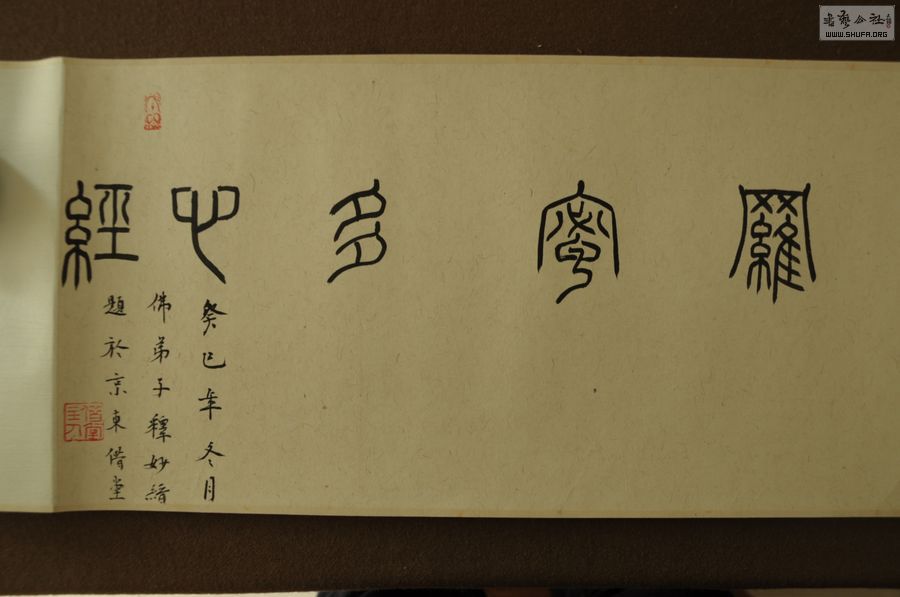 羅蜜多心經
癸巳年冬月
佛弟子釋妙
題於京東借堂
書藝公社
WWW.SHUFA.ORG